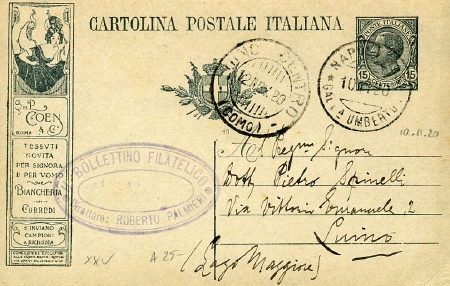 CARTOLINA POSTALE ITALIANA
POSTE ITALIANE
15 15
NAPOLI
10 20
GALLA UMBERTO
LUINO CENTRO
12 NOV 20
(COMO)
10-11-20
G. & P.
COEN
& C.
ROMA
TESSUTI
NOVITÀ
PER SIGNORA
E PER UOMO
BIANCHERIA
CORREDI
S'INVIANO
CAMPIONI
A RICHIESTA
BOLLETTINO FILATELICO
Direttore: ROBERTO PALMIERI
19
A
Al Pregmo Signor
Dott Pietro Spinelli
Via Vittorio Emanuele, 2
Luino
(Lago Maggiore)
XXV
A 25-